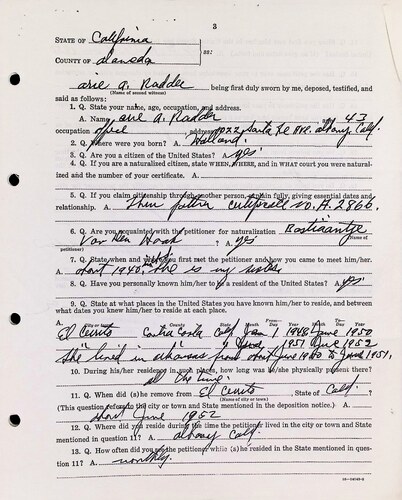 3
STATE OF California
COUNTY OF alameda } ss:
arie a. Radder being first duly sworn by me, deposed, testified, and
(Name of second witness)
said as follows:
1. Q. State your name, age, occupation, and address.
A. Name arie A. Radder age 43
occupation address 1022 Santa Fe Ave. albany Calif.
2. Q. Where were you born? A. Holland.
3. Q. Are you a citizen of the United States? A. yes
4. Q. If you are a naturalized citizen, state WHEN, WHERE, and in WHAT court you were natural-
ized and the number of your certificate. A.
5. Q. If you claim citizenship through another person, explain fully, giving essential dates and
relationship. A. Thru father no. A. 2866.
6. Q. Are you acquainted with the petitioner for naturalization Bastiaantje
(Name of
Van Den Hoek ? A. yes
petitioner)
7. Q. State when and where you first met the petitioner and how you came to meet him/her.
A. about 1940. She is my sister
8. Q. Have you personally known him/her to be a resident of the United States? A. yes
9. Q. State at what places in the United States you have known him/her to reside, and between
what dates you knew him/her to reside at each place.
A. City or town County State Month From— Day Year Month To— Day Year
El Cerrito Contra Costa Calif Jan 1 1948 June 1950
" " " June 1951 June 1952
She lived in arkansas from about June 1950 to June 1951.
10. During his/her residence in such places, how long was he/she physically present there?
all the time.
11. Q. When did he/she remove from El Cerrito , State of Calif. ?
(Name of city or town)
(This question refers to the city or town and State mentioned in the deposition notice.) A.
about June 1952
12. Q. Where did you reside during the time the petitioner lived in the city or town and State
mentioned in question 11? A. albany Calif.
13. Q. How often did you see the petitioner while (s)he resided in the State mentioned in ques-
tion 11? A. monthly.